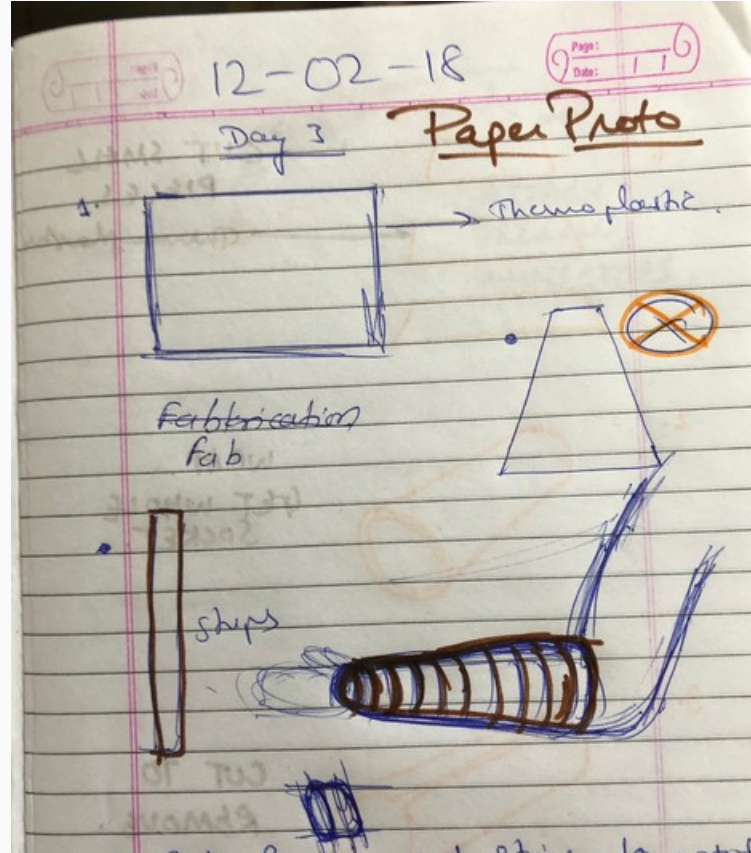 12-02-18
Page:
Date:
Day 3
Paper Proto
1.
Thermoplastic.
Fabbrication
fab
strips